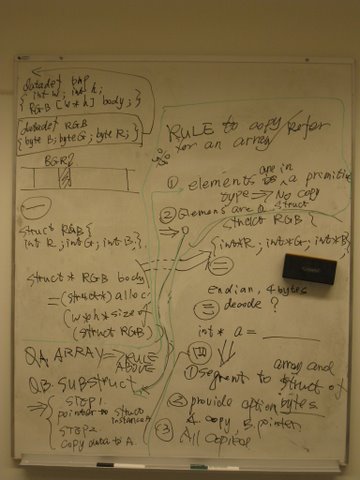 datadef bmp
{ int w; int h;
RGB [w*h] body; }
datadef RGB
{ byte B; byte G; byte R; }
BGR
struct RGB {
int R; int G; int B; };
struct* RGB body
= (struct*) alloc
(w*h*sizeof
(struct RGB))
Q.A. ARRAY =
RULE
ABOVE
Q.B. SUBSTRUCT
⇒ { STEP1.
pointer to struct
instances
STEP2.
copy data to A.
RULE to copy/refer
for an array
① elements are in
a primitive
type ⇒ No copy
② Elemens are a struct
struct RGB {
{int*R; int*G; int*B}
endian, 4 bytes
decode ?
int* a =
① segment to array and
struct of
bytes.
② provide option
A. copy, B. pointer
③ All copied